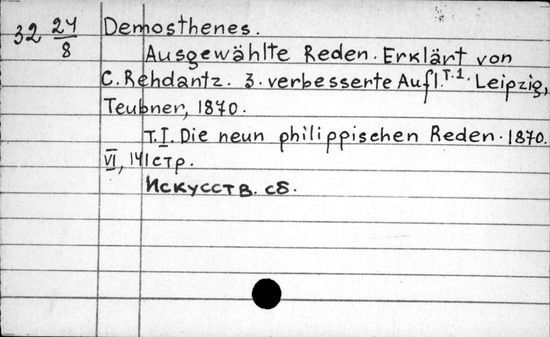 32 24/8 Demosthenes.
Ausgewählte Reden. Erklärt von
C. Rehdantz. 3. verbesserte Aufl. T.1. Leipzig,
Teubner, 1870.
T.I. Die neun philippischen Reden. 1870.
VI, 141 стр.
Искусств. сб.